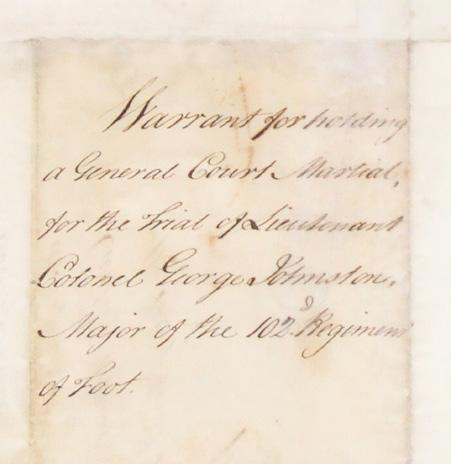 Warrant for holding
a General Court Martial,
for the Trial of Lieutenant
Colonel George Johnston,
Major of the 102d Regiment
of Foot.